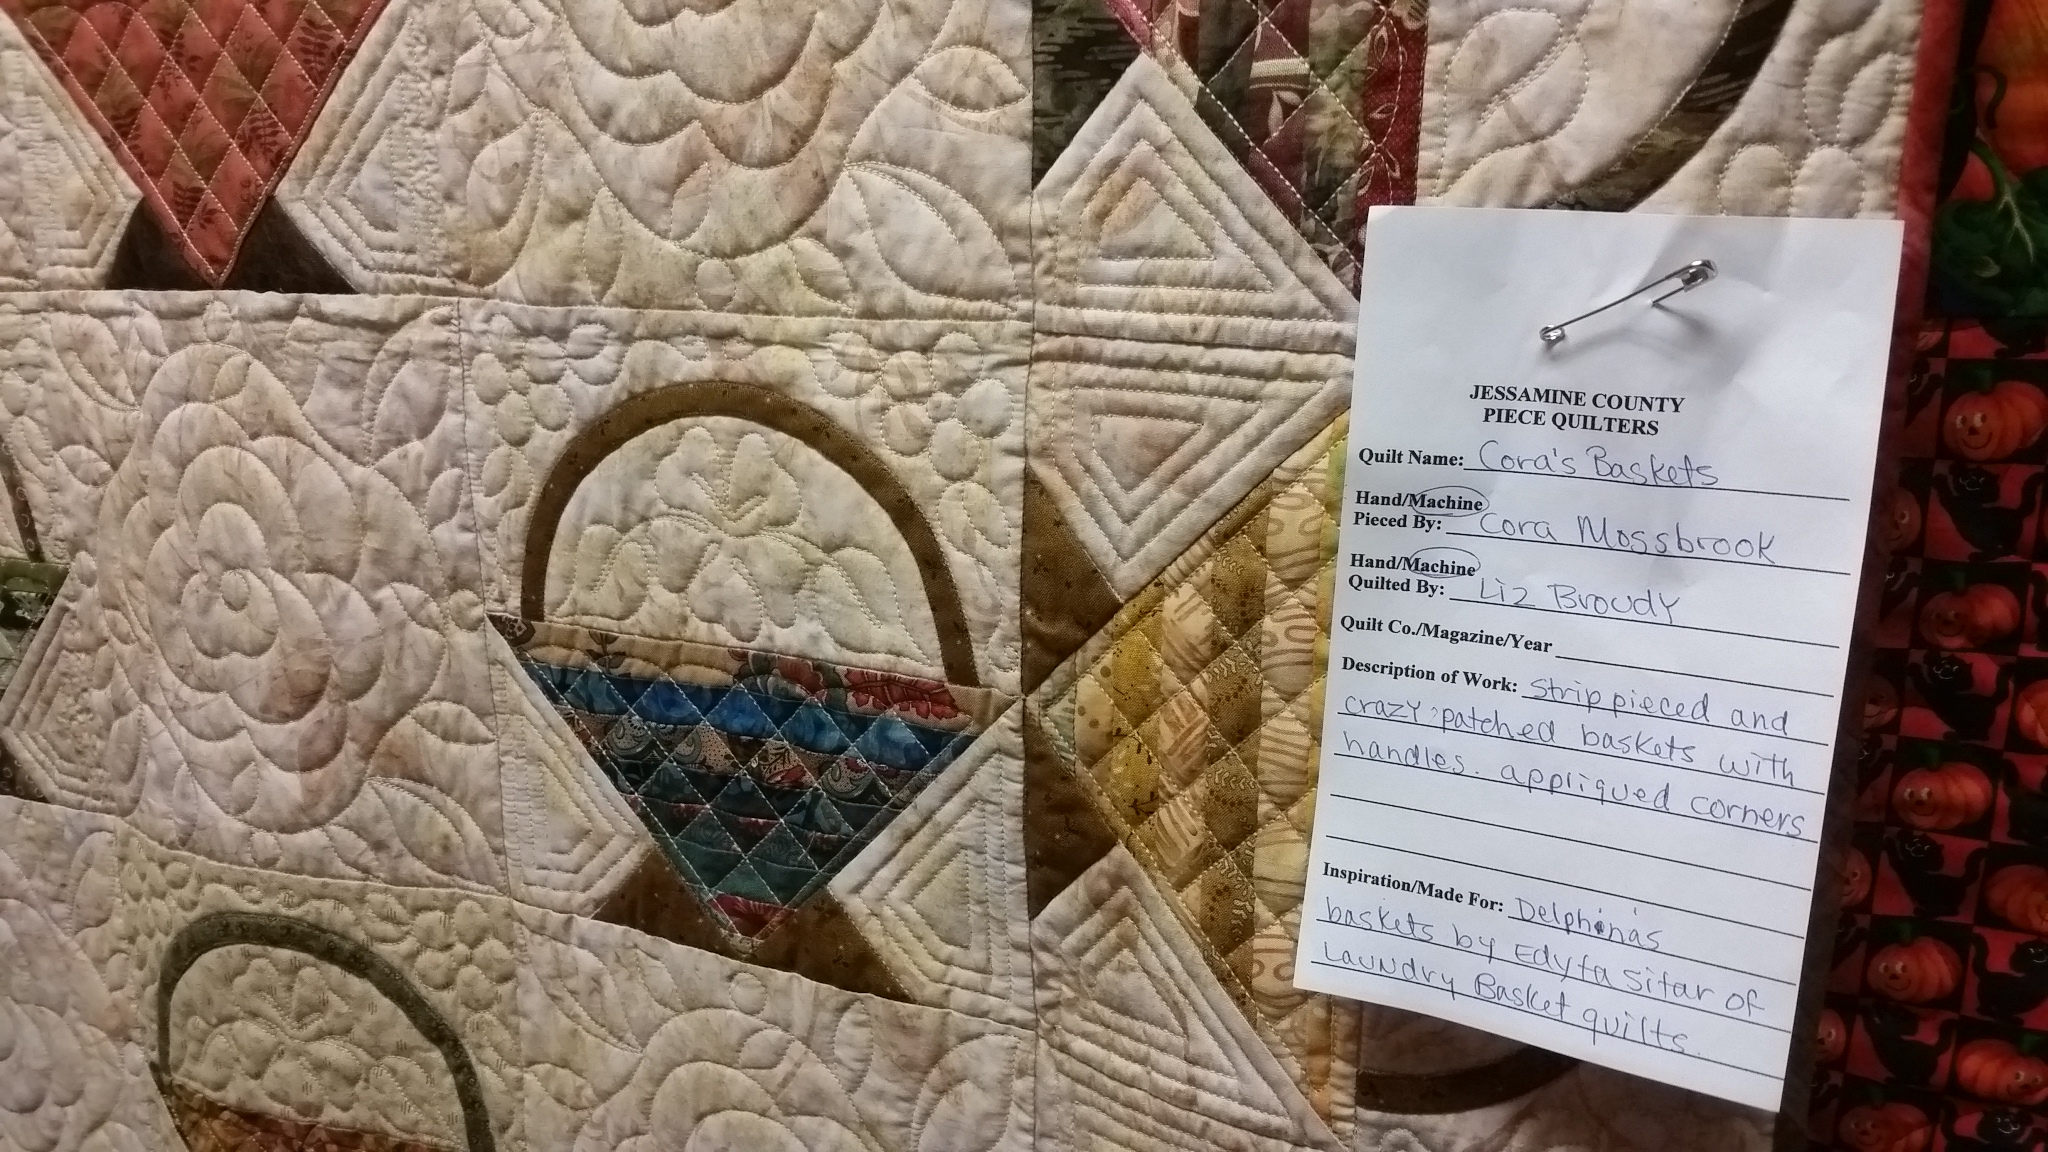 JESSAMINE COUNTY
PIECE QUILTERS
Quilt Name: Cora's Baskets
Hand/Machine
Pieced By: Cora Mossbrook
Hand/Machine
Quilted By: Liz Broudy
Quilt Co./Magazine/Year
Description of Work: Strip pieced and
crazy patched baskets with
handles. appliqued corners
Inspiration/Made For: Delphina's
baskets by Edyta Sitar of
Laundry Basket quilts.